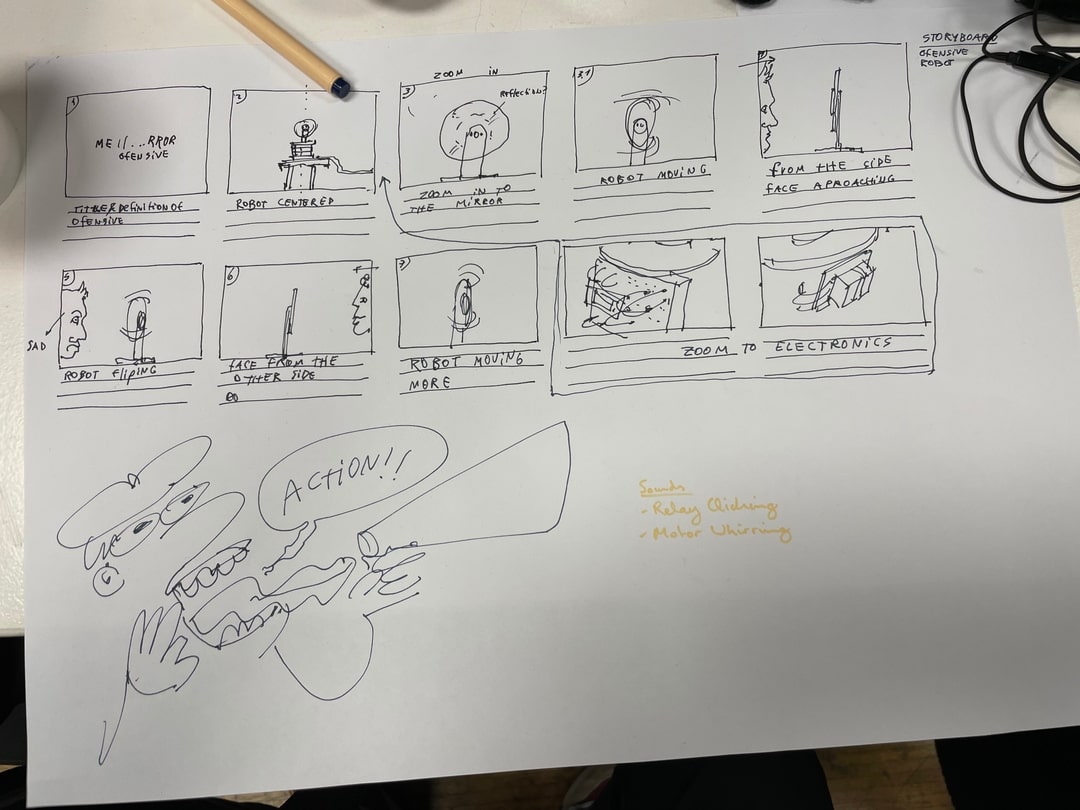 STORYBOARD
OFENSIVE
ROBOT
1)
ME //...RROR
OFENSIVE
TITLE & DEFINITION OF
OFENSIVE
2
ROBOT CENTERED
ZOOM IN
3
REFLECTION?
ZOOM IN TO
THE MIRROR
3,1
ROBOT MOVING
FROM THE SIDE
FACE APROACHING
5)
SAD
ROBOT FLIPING
6)
FACE FROM THE
OTHER SIDE
7
ROBOT MOVING
MORE
ZOOM TO ELECTRONICS
ACTION!!
Sounds
- Relay Clicking
- Motor Whirring